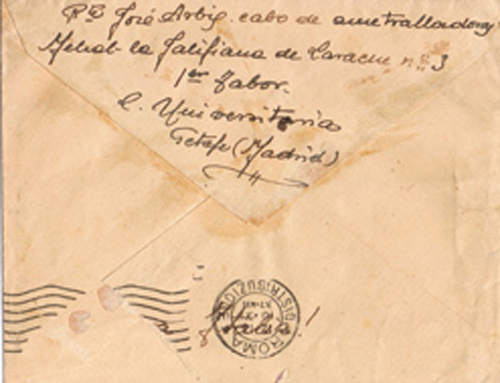 Rte José Arbig. cabo de ametralladoras
Mehal-la Jalifiana de Larache nº 3
1er Tabor.
C. Universitaria
Getafe (Madrid)
ROMA
DISTRIBUZIONE